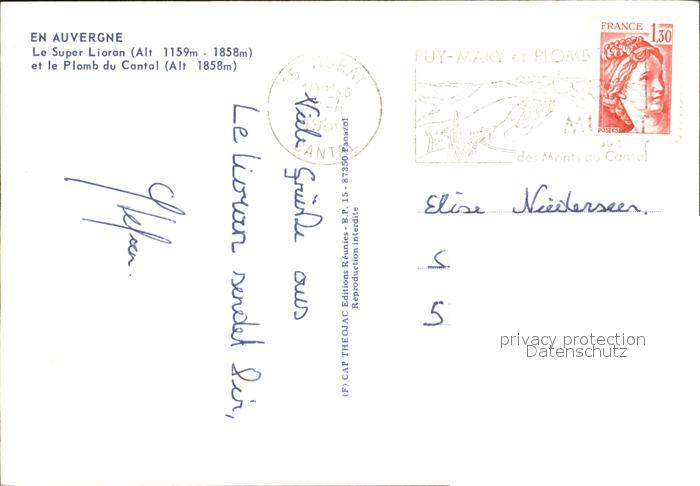 EN AUVERGNE
Le Super Lioran (Alt 1159m - 1858m)
et le Plomb du Cantal (Alt 1858m)
15 MURAT
CANTAL
PUY-MARY et PLOMB
des Monts du Cantal
FRANCE
1,30
POSTES
Viele Grüße aus
Le Lioran sendet Dir,
Stefan.
(F) CAP THEOJAC Editions Réunies - B.P. 15 - 87350 Panazol
Reproduction interdite
Elise Niederseer.
5
privacy protection
Datenschutz